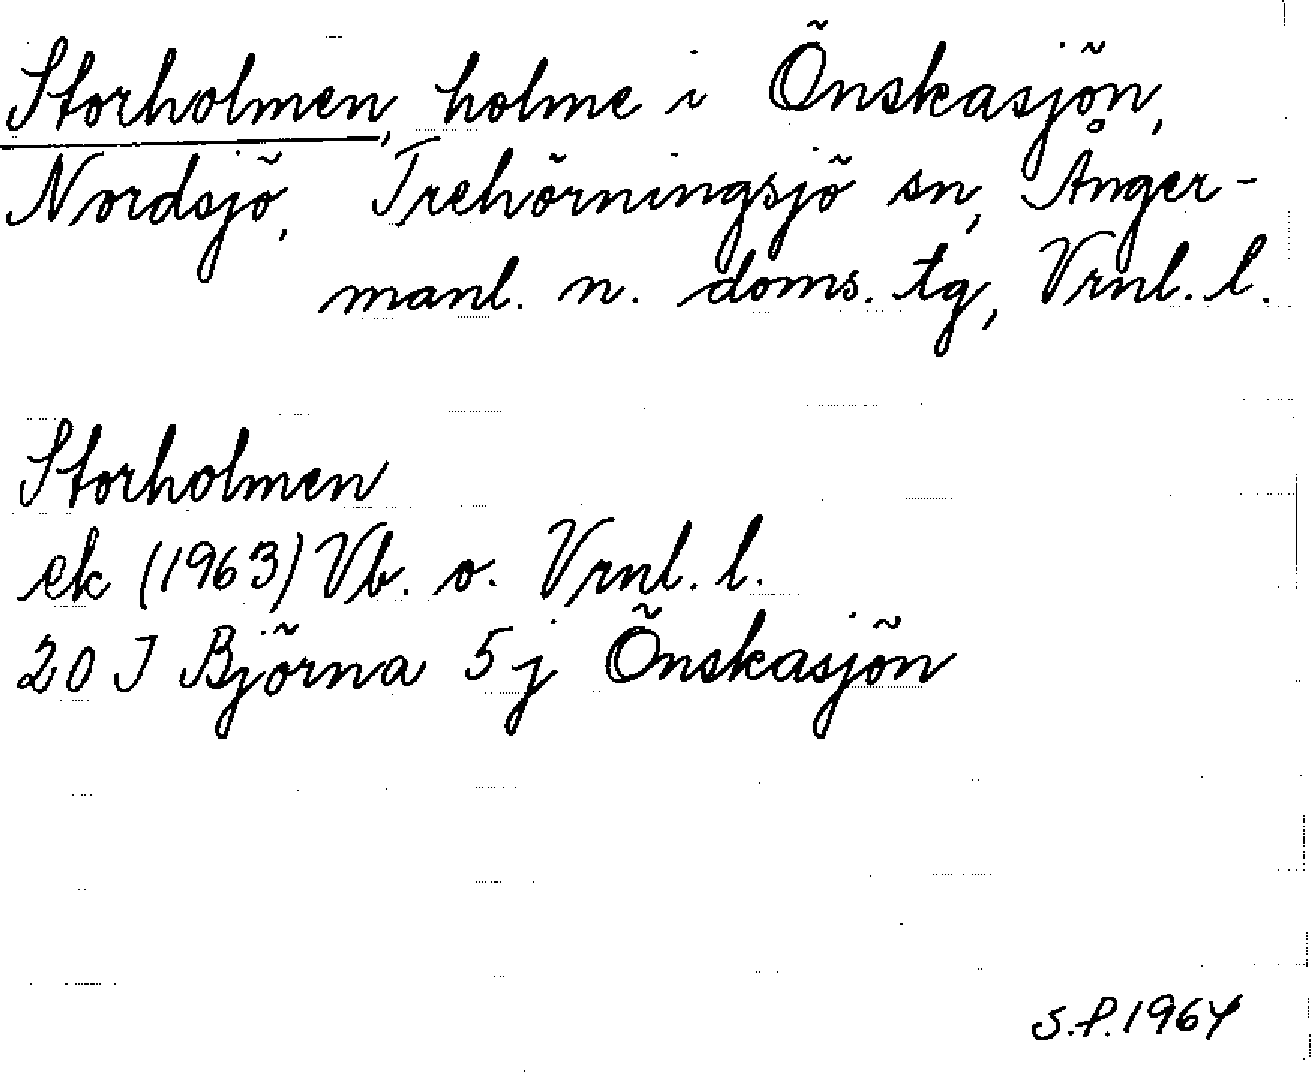 Storholmen, holme i Önskasjön,
Nordsjö, Trehörningsjö sn, Ånger-
manl. n. doms. tg, Vrnl. l.
Storholmen
ek (1963) Vb. o. Vrnl. l.
20 I Björna 5 j Önskasjön
S.P. 1964